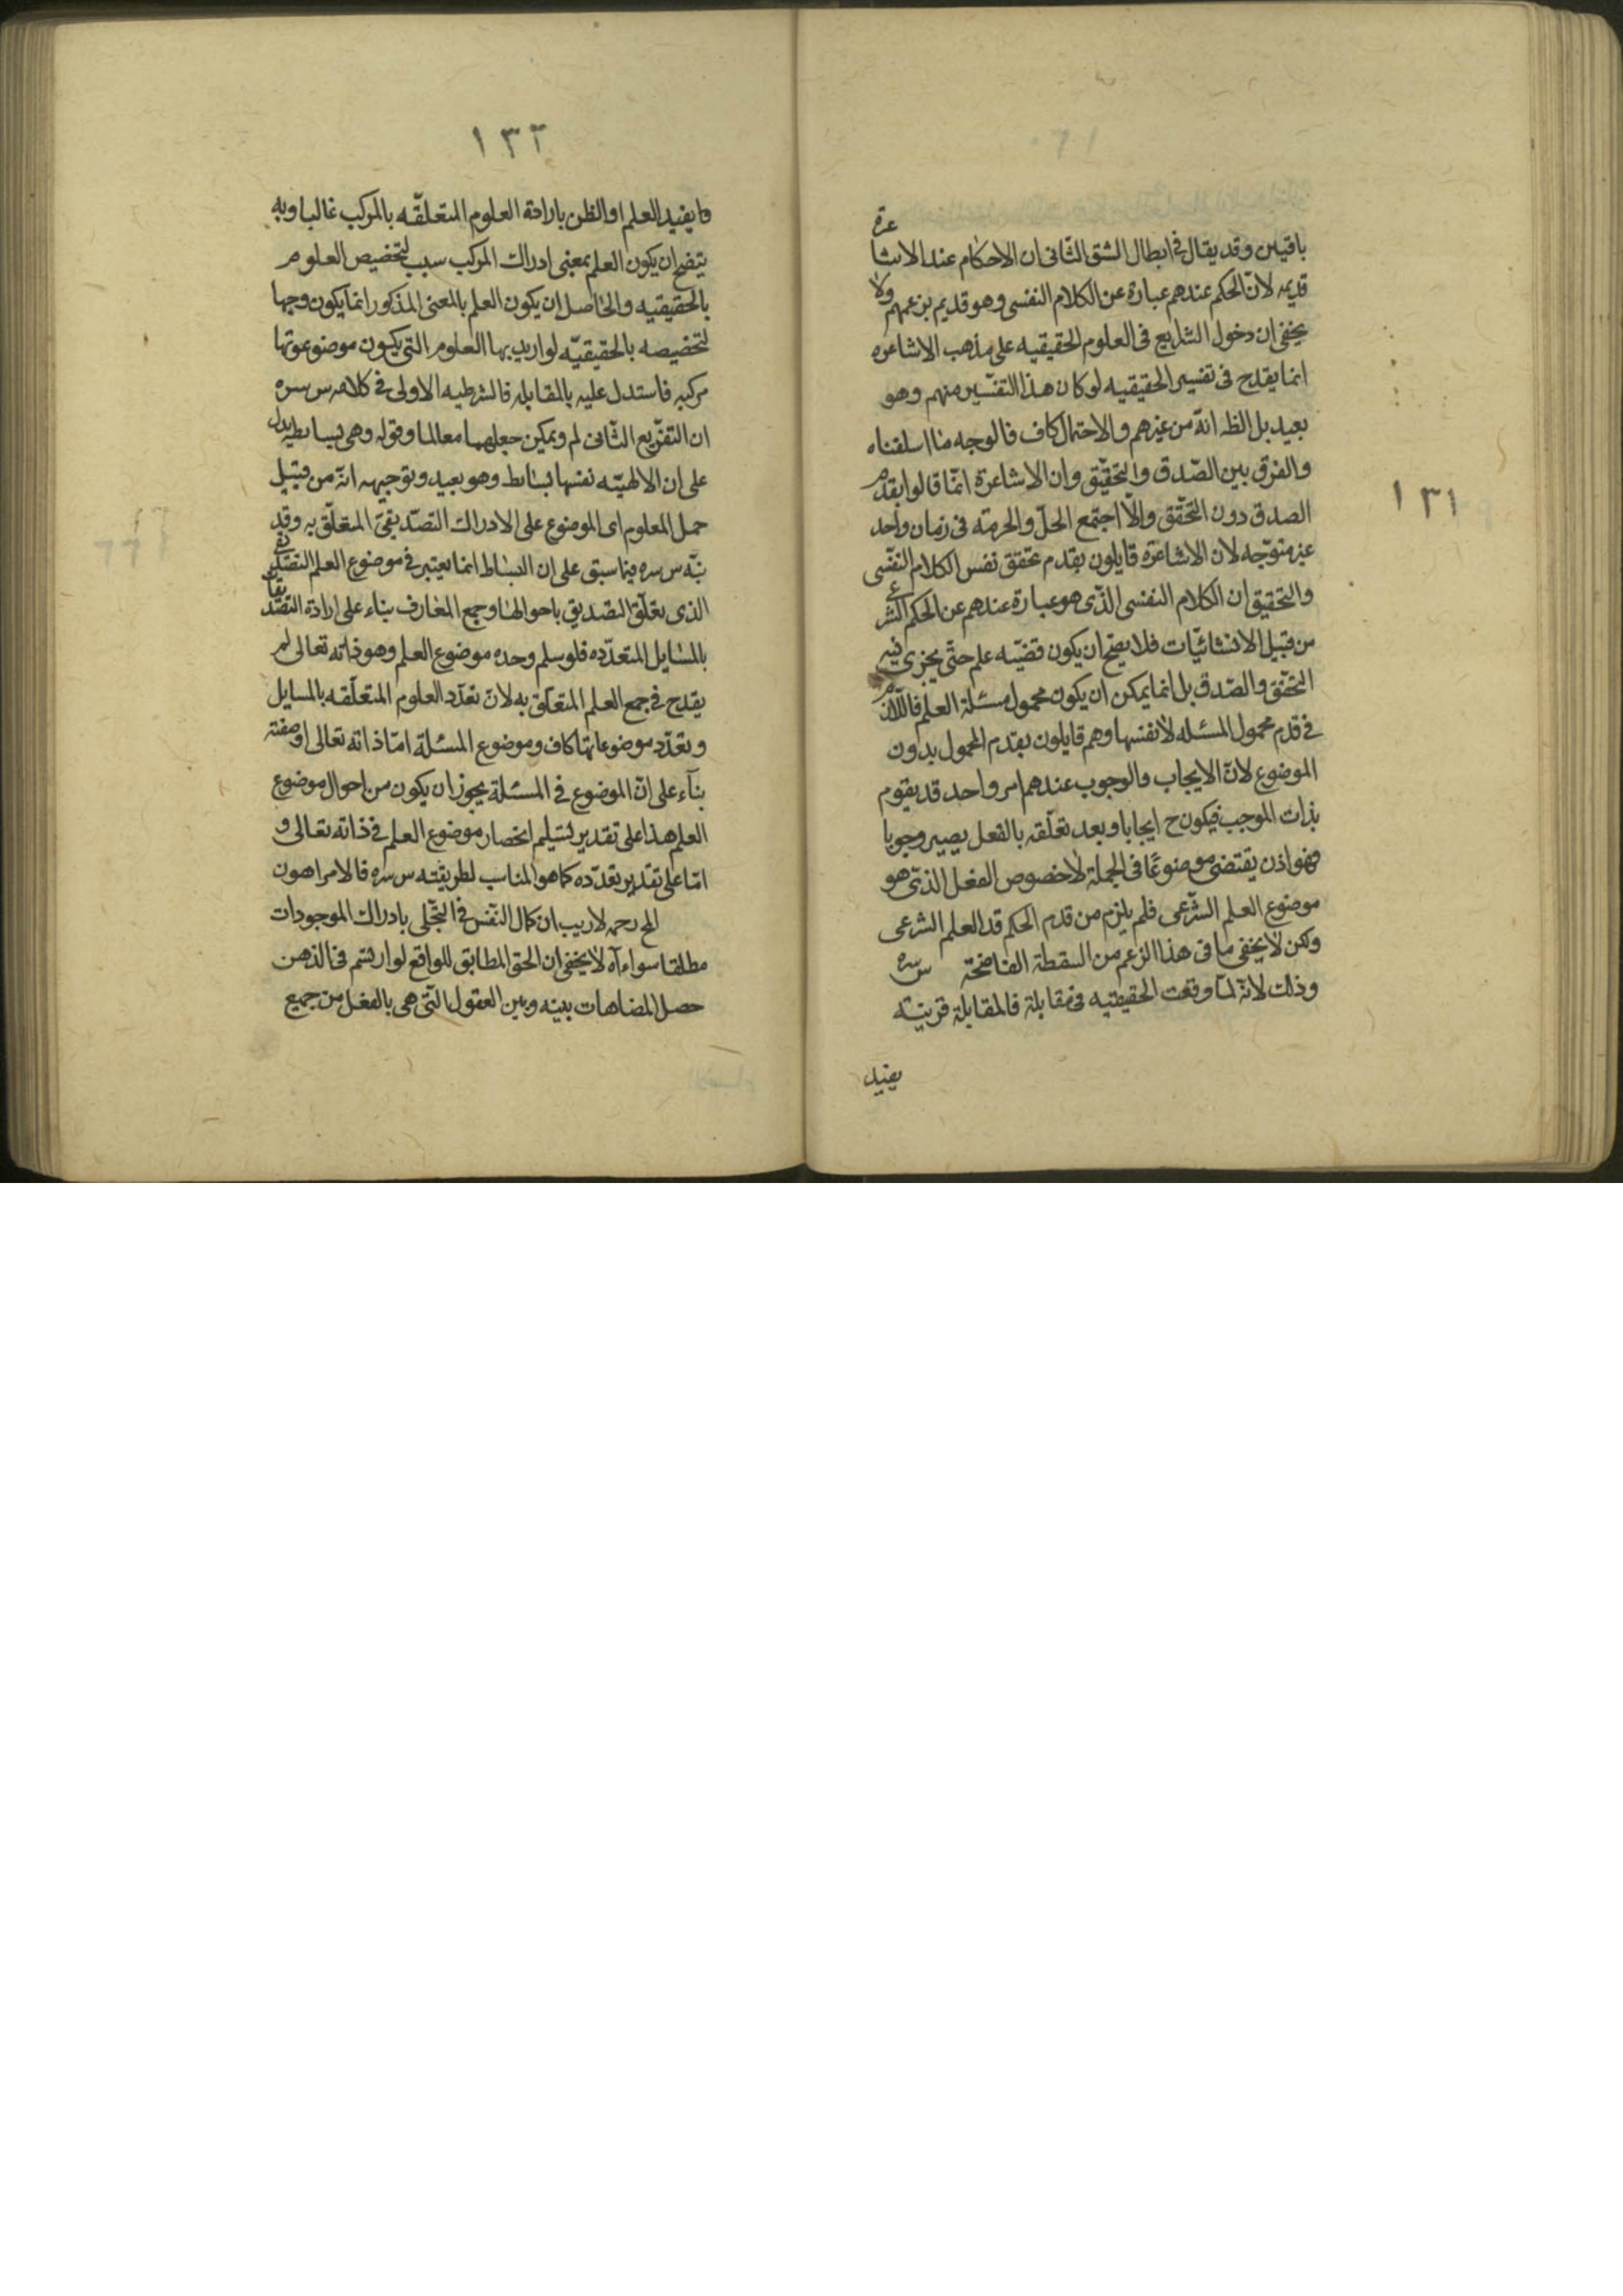 ١٣١
باقيين وقد يقال فى ابطال الشق الثانى ان الاحكام عند الاشاعرة
قديمه لان الحكم عندهم عبارة عن الكلام النفسى وهو قديم بزعمهم ولا
يخفى ان دخول الشرايع فى العلوم الحقيقيه على مذهب الاشاعره
انما يقدح فى تفسير الحقيقيه لو كان هذا التفسير منهم وهو
بعيد بل الظ انه من غيرهم والاحتمال كاف فالوجه ما اسلفناه
والفرق بين الصدق والتحقيق وان الاشاعرة انما قالوا بقدم
الصدق دون التحقق والا اجتمع الحل والحرمة فى زمان واحد
غير متوجه لان الاشاعرة قايلون بقدم تحقق نفس الكلام النفسى
والتحقيق ان الكلام النفسى الذى هو عبارة عندهم عن الحكم الشرعى
من قبيل الانشائيات فلا يصح ان يكون قضيه علم حتى يجزى فيه
التحقق والصدق بل انما يمكن ان يكون محمول مسئلة العلم فاللازم
فى قدم محمول المسئله لا نفسها وهم قايلون بقدم المحمول بدون
الموضوع لان الايجاب والوجوب عندهم امر واحد قد يقوم
بذات الموجب فيكون ح ايجابا وبعد تعلقه بالفعل يصير وجوبا
فهو اذن يقتضى موضوعا فى الجملة لا خصوص الفعل الذى هو
موضوع العلم الشرعى فلم يلزم من قدم الحكم قد العلم الشرعى
ولكن لا يخفى ما فى هذا الزعم من السقطة الفاضحة س سره
وذلك لانه لما وقعت الحقيقيه فى مقابلة فالمقابلة قرينته
يفيد
١٣٢
ما يفيد العلم او الظن بارادة العلوم المتعلقه بالمركب غالبا وبه
يتضح ان يكون العلم بمعنى ادراك المركب سبب لتخصيص العلوم
بالحقيقيه والحاصل ان يكون العلم بالمعنى المذكور انما يكون وجها
لتخصيصه بالحقيقيه لو اريد بها العلوم التى يكون موضوعوتها
مركبه فاستدل عليه بالمقابله فالشرطيه الاولى فى كلامه س سره
ان التفريع الثانى لم ويمكن جعلهما معالما وقوله وهى بساطيه يدل
على ان الالهيه نفسها بسايط وهو بعيد وتوجيهه انه من قبيل
حمل المعلوم اى الموضوع على الادراك التصديقى المتعلق به وقد
نبه س سره فيما سبق على ان البساط انما يعتبر فى موضوع العلم التصديقى
الذى تعلق التصديق باحوالها وجمع المعارف بناء على ارادة التصديقات
بالمسايل المتعدده فلو سلم وحده موضوع العلم وهو ذاته تعالى لم
يقدح فى جمع العلم المتعلق به لان تعدد العلوم المتعلقه بالمسايل
وبتعدد موضوعاتها كاف وموضوع المسئلة اما ذاته تعالى او صفته
بناء على ان الموضوع فى المسئلة يجوز ان يكون من احوال موضوع
العلم هذا على تقدير تسليم انحصار موضوع العلم فى ذاته تعالى و
اما على تقدير تعدده كما هو المناسب لطريقته س سره فالامر اهون
المح رحمه لا ريب ان كمال النفس فى التجلى بادراك الموجودات
مطلقا سواء اه لا يخفى ان الحق المطابق للواقع لو ارتسم فى الذهن
حصل المضاهات بينه وبين العقول التى هى بالفعل من جميع